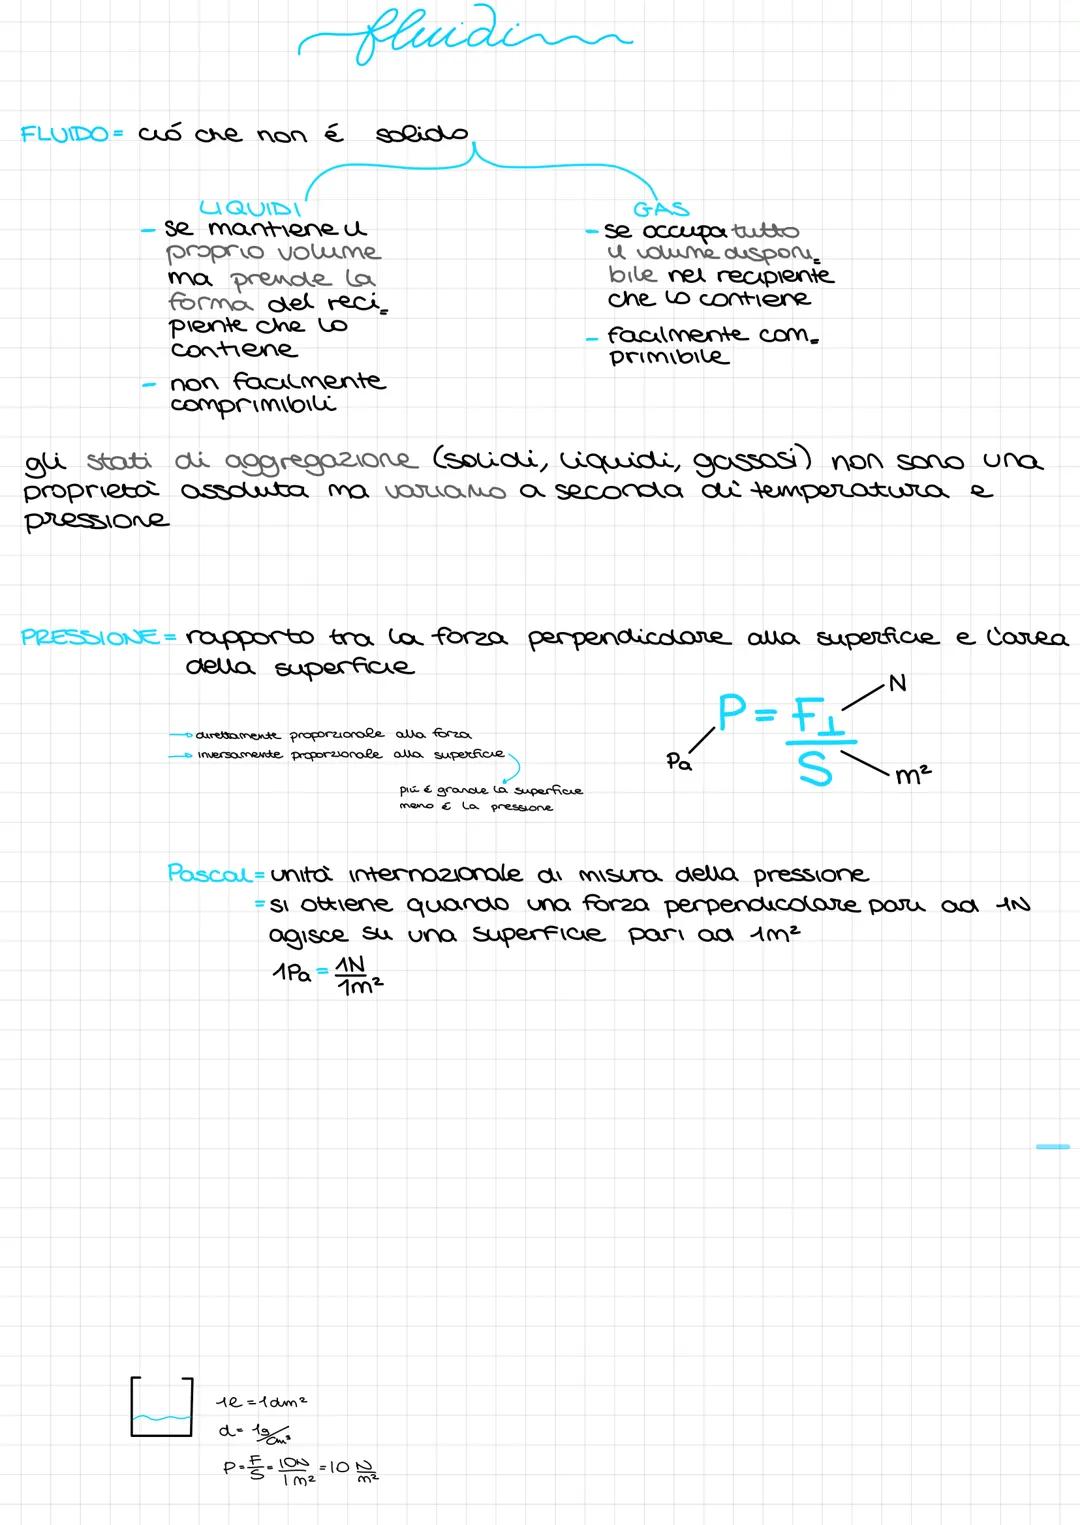 fluidi
FLUIDO = ció che non é solido
LIQUIDI
- se mantiene il
proprio volume
ma prende la
forma del reci=
piente che lo
contiene
- non facilmente
comprimibili
GAS
- se occupa tutto
il volume disponi=
bile nel recipiente
che lo contiene
- facilmente com=
primibile
gli stati di aggregazione (solidi, liquidi, gassosi) non sono una
proprietà assoluta ma variano a seconda di temperatura e
pressione
PRESSIONE = rapporto tra la forza perpendicolare alla superficie e l'area
della superficie
→ direttamente proporzionale alla forza
→ inversamente proporzionale alla superficie
piú é grande la superficie
meno é la pressione
P = F⊥/S
N
Pa
m²
Pascal = unità internazionale di misura della pressione
= si ottiene quando una forza perpendicolare pari ad 1N
agisce su una superficie pari ad 1m²
1Pa = 1N/1m²
1l = 1dm²
d = 1g/cm³
P = F/S = 10N/1m² = 10 N/m²